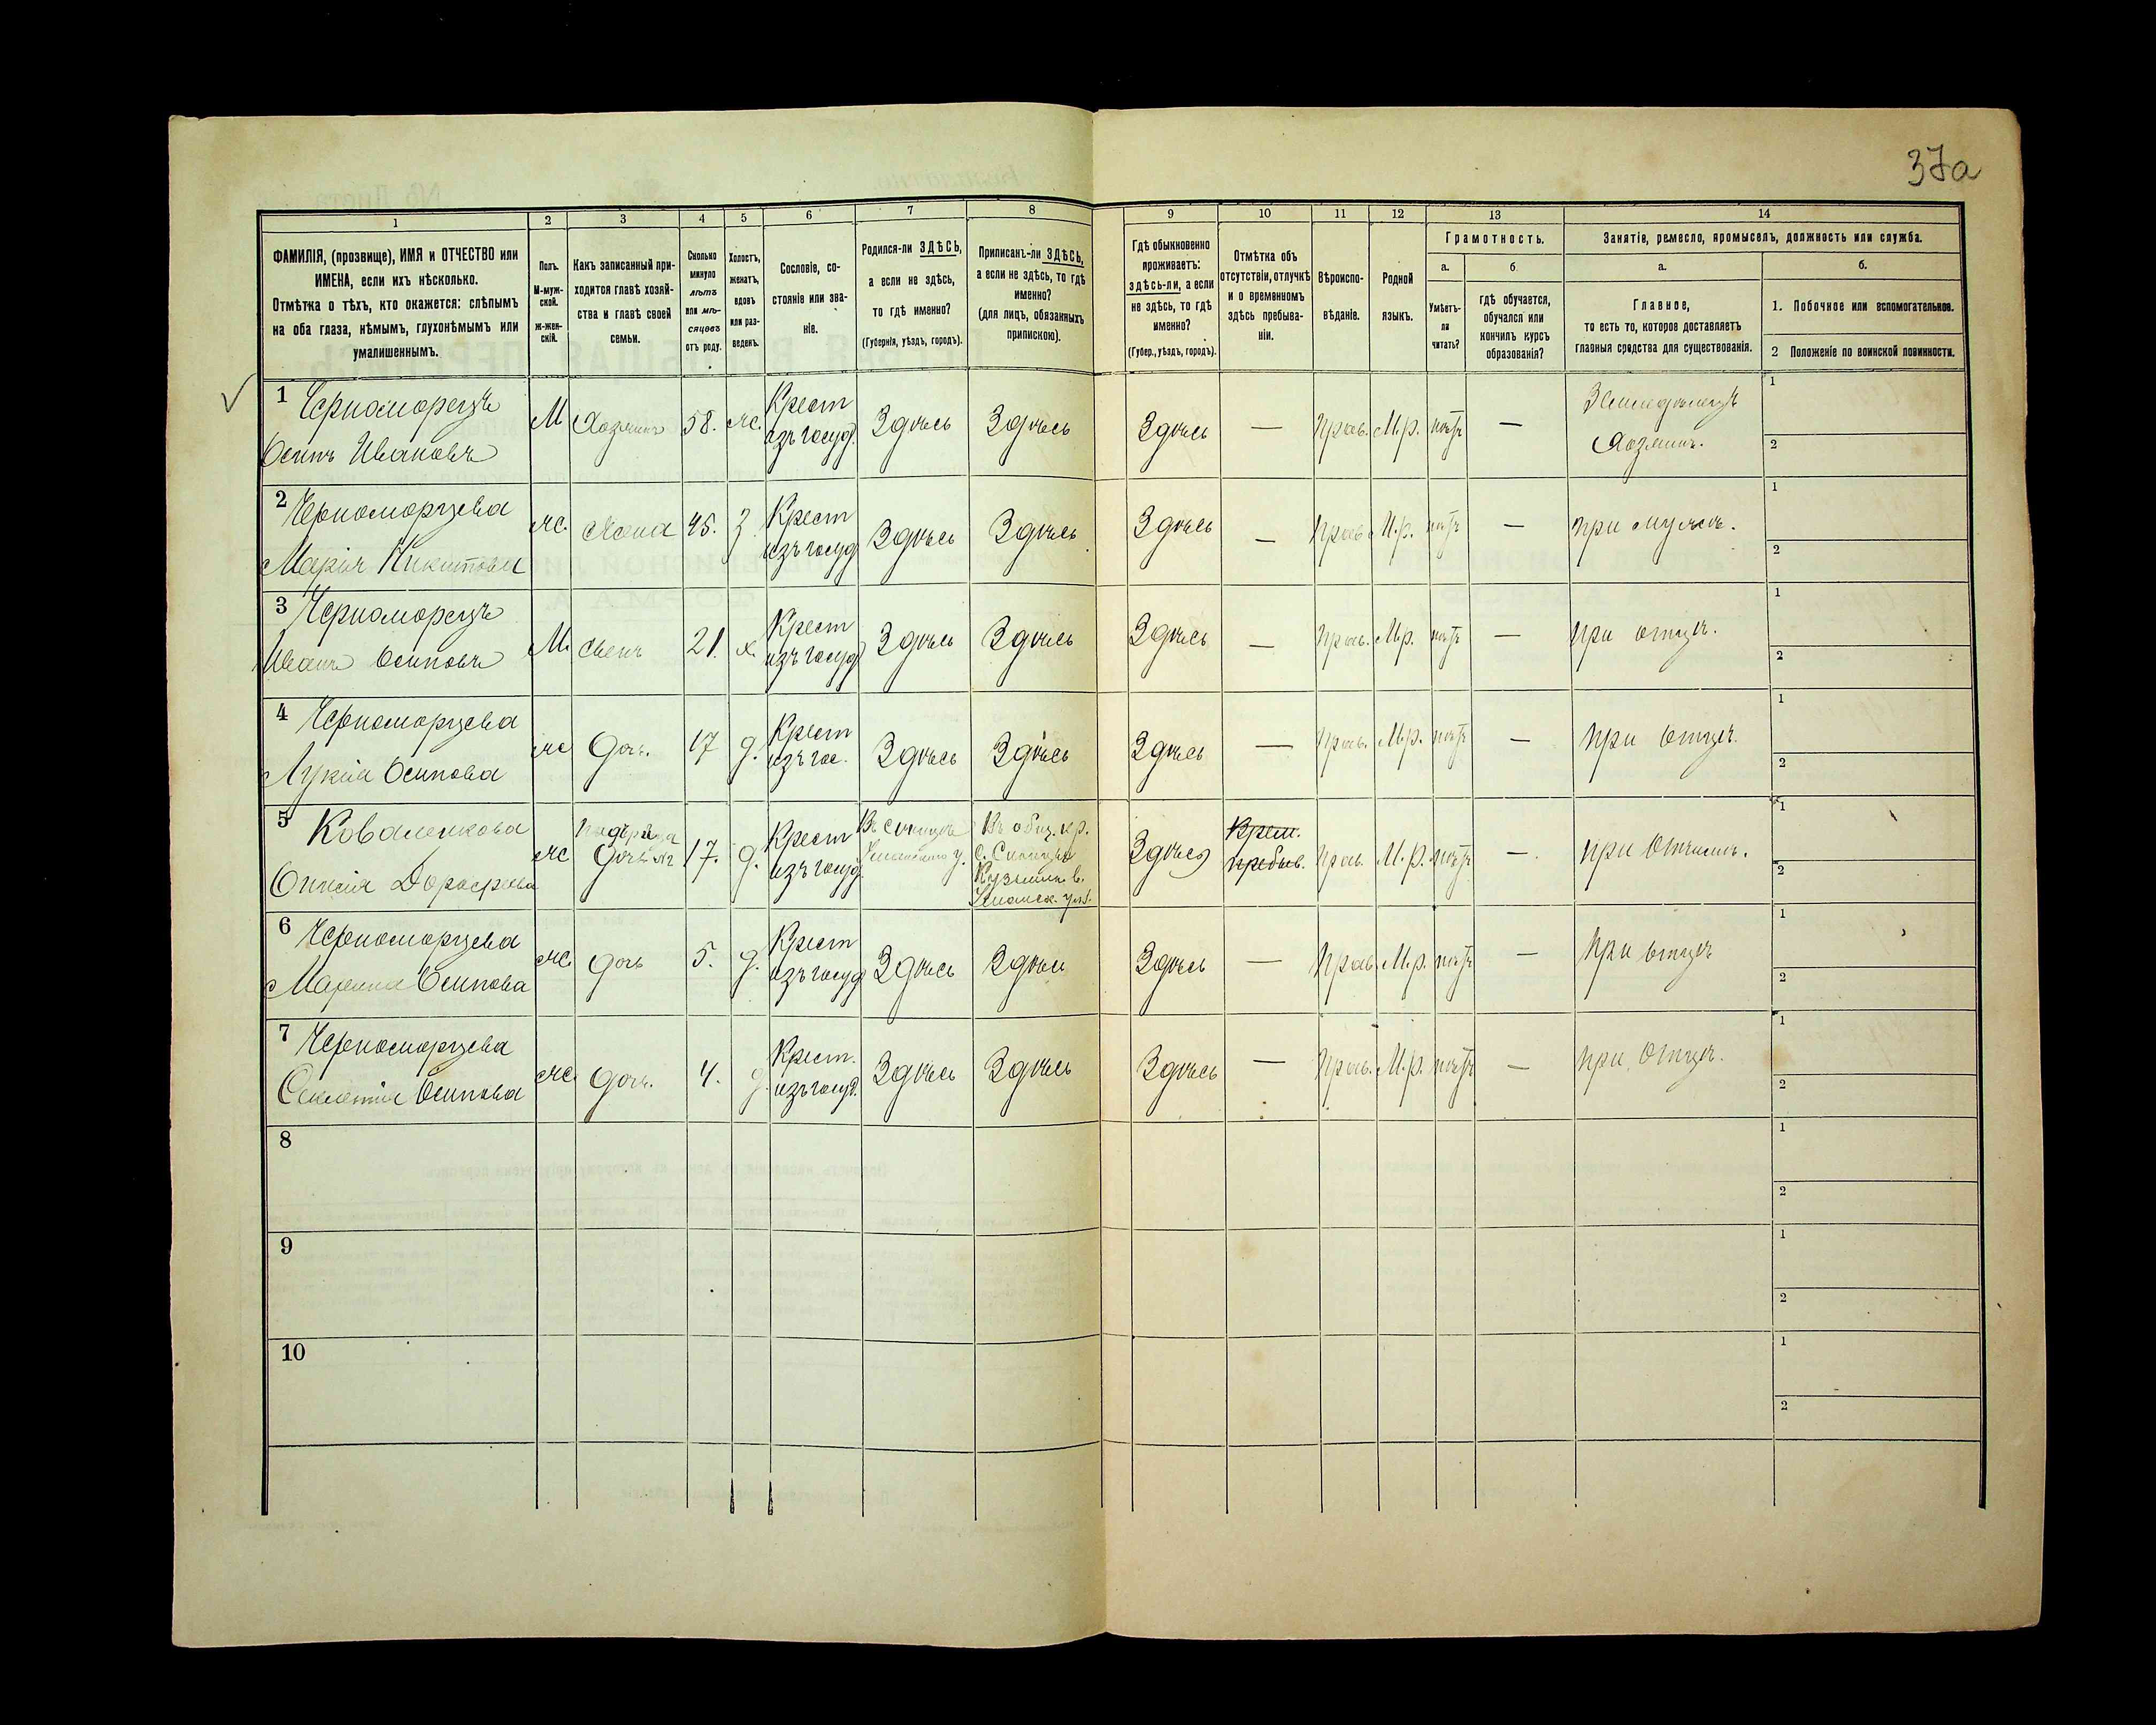 37а
1
2
3
4
5
6
7
8
9
10
11
12
13
14
ФАМИЛІЯ, (прозвище), ИМЯ и ОТЧЕСТВО или
ИМЕНА, если ихъ нѣсколько.
Отмѣтка о тѣхъ, кто окажется: слѣпымъ
на оба глаза, нѣмымъ, глухонѣмымъ или
умалишеннымъ.
Полъ.
М-муж-
ской.
ж-жен-
скій.
Какъ записанный при-
ходится главѣ хозяй-
ства и главѣ своей
семьи.
Сколько
минуло
лѣтъ
или мѣ-
сяцевъ
отъ роду.
Холостъ,
женатъ,
вдовъ
или раз-
веденъ.
Сословіе, со-
стояніе или зва-
ніе.
Родился-ли ЗДѢСЬ,
а если не здѣсь,
то гдѣ именно?
(Губернія, уѣздъ, городъ).
Приписанъ-ли ЗДѢСЬ,
а если не здѣсь, то гдѣ
именно?
(для лицъ, обязанныхъ
припискою).
Гдѣ обыкновенно
проживаетъ:
здѣсь-ли, а если
не здѣсь, то гдѣ
именно?
(Губер., уѣздъ, городъ).
Отмѣтка объ
отсутствіи, отлучкѣ
и о временномъ
здѣсь пребыва-
ніи.
Вѣроиспо-
вѣданіе.
Родной
языкъ.
Грамотность.
а.
Умѣетъ-
ли
читать?
б
гдѣ обучается,
обучался или
кончилъ курсъ
образованія?
Занятіе, ремесло, промыселъ, должность или служба.
а.
Главное,
то есть то, которое доставляетъ
главныя средства для существованія.
б.
1. Побочное или вспомогательное.
2 Положеніе по воинской повинности.
1 Черноморецъ
Осипъ Ивановъ
М
Хозяинъ
58.
ж.
Крест
изъ госуд.
Здѣсь
Здѣсь
Здѣсь
—
Прав.
М.р.
нѣтъ
—
Земледѣлецъ
Хозяинъ.
1
2
2 Черноморцева
Марія Никитова
ж.
жена
45.
з.
Крест
изъ госуд
Здѣсь
Здѣсь
Здѣсь
—
Прав.
М.р.
нѣтъ
—
при мужѣ.
1
2
3 Черноморецъ
Иванъ Осиповъ
М.
сынъ
21.
х.
Крест
изъ госуд
Здѣсь
Здѣсь
Здѣсь
—
Прав.
М.р.
нѣтъ
—
при отцѣ.
1
2
4 Черноморцева
Лукія Осипова
ж
дочь.
17
д.
Крест
изъ гос.
Здѣсь
Здѣсь
Здѣсь
—
Прав.
М.р.
нѣтъ
—
при отцѣ.
1
2
5 Коваленкова
ж
дочь
17.
д.
Крест
изъ госуд.
Въ
у.
Въ общ. кр.
с.
Здѣсь
Крест.
пребыв.
Прав.
М.р.
нѣтъ
—.
при отчимѣ.
1
2
6 Черноморцева
Марина Осипова
ж.
дочь
5.
д.
Крест
изъ госуд
Здѣсь
Здѣсь
Здѣсь
—
Прав.
М.р.
нѣтъ
—
при отцѣ
1
2
7 Черноморцева
Осипова
ж.
дочь.
4.
д.
Крест.
изъ госуд.
Здѣсь
Здѣсь
Здѣсь
—
Прав.
М.р.
нѣтъ
—
при отцѣ.
1
2
8
1
2
9
1
2
10
1
2